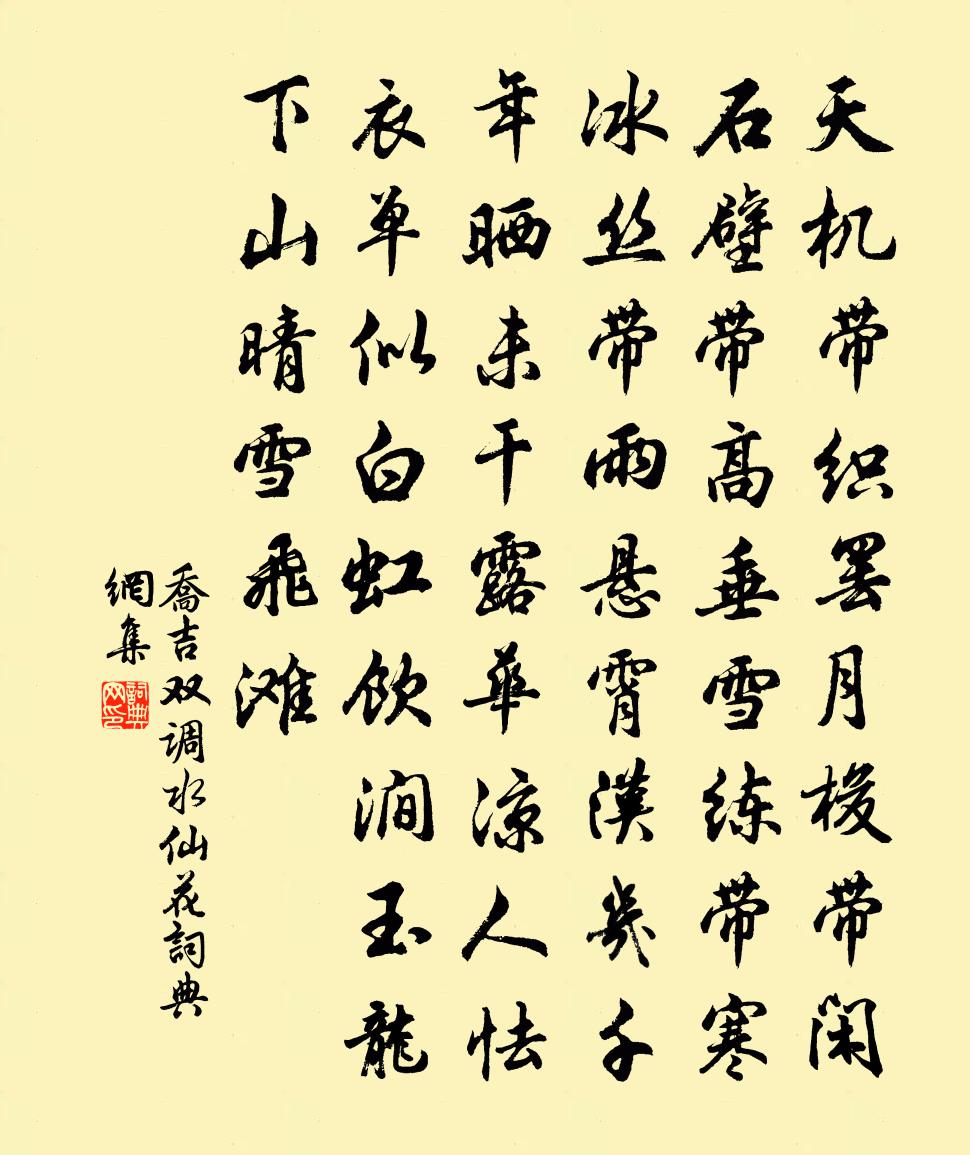 天机带织罢月梭带闲
石壁带高垂雪练带寒
冰丝带雨悬霄汉几千
年晒未干露华凉人怯
衣单似白虹饮涧玉龙
下山晴雪飛滩
喬吉双调水仙花詞典
網集
詞典
网印